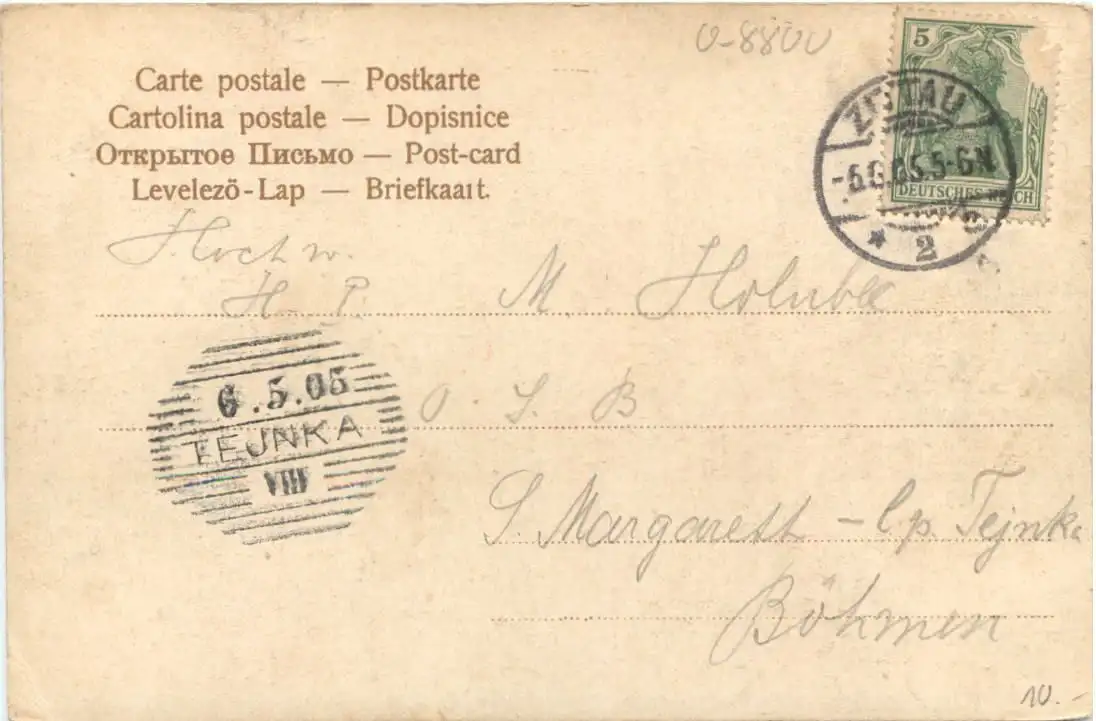 0-8800
Carte postale — Postkarte
Cartolina postale — Dopisnice
Открытое Письмо — Post-card
Levelezö-Lap — Briefkaart.
5
DEUTSCHES REICH
ZITTAU
5-6N.
* 2
Hochw.
H. P. M. Holubec
O. S. B
6.5.05
TEJNKA
VIII
S. Margareth - Tejnka
Böhmen
10.-